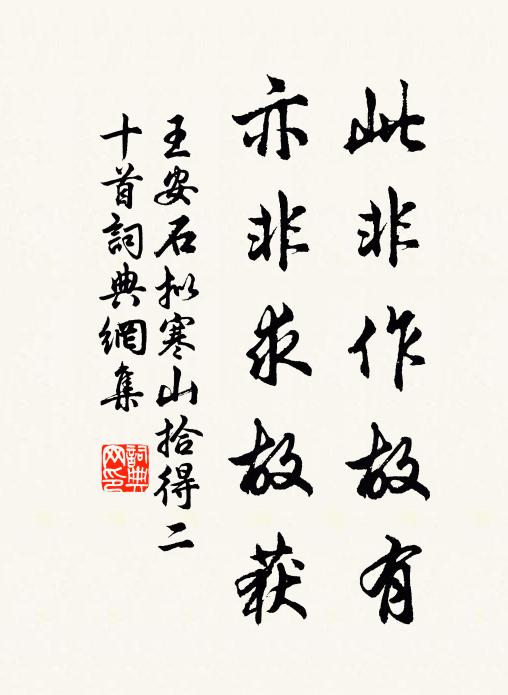 此非作故有
亦非求故获
王安石拟寒山拾得二
十首詞典網集
詞典
网印